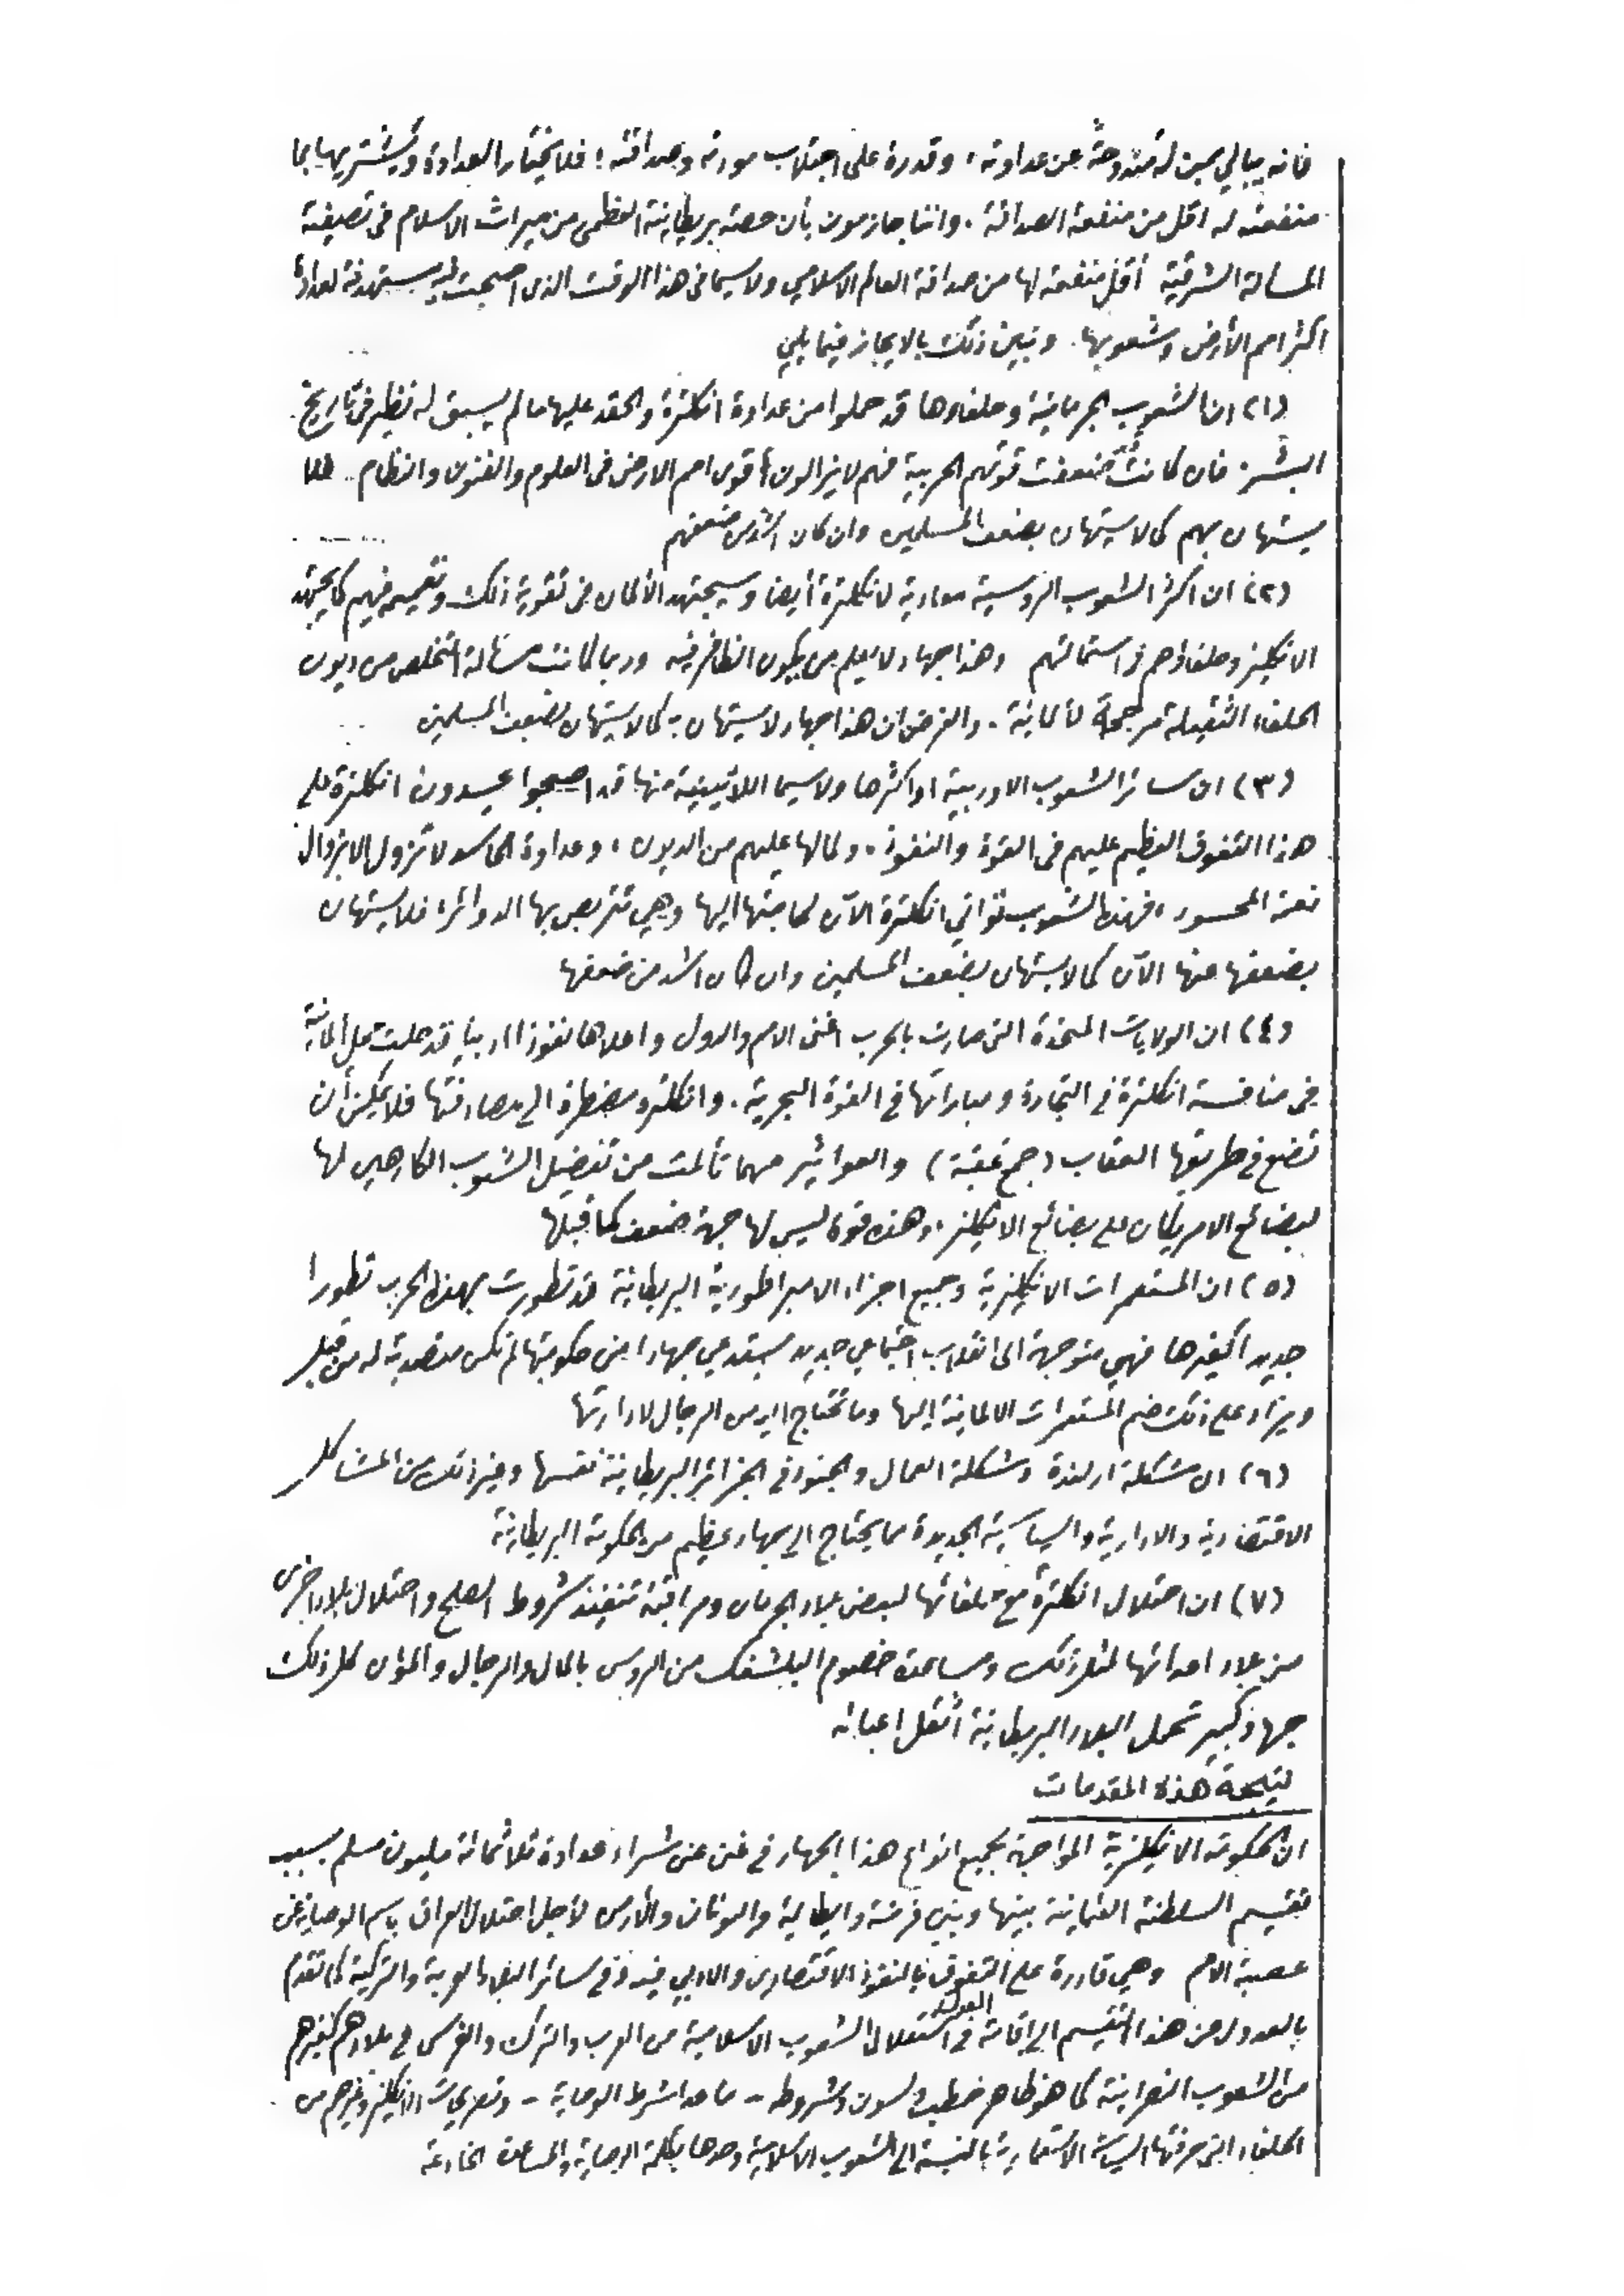 فانه يبالي بمن له مندوحة عن عداوته، وقدرة على اجتلاب مودته وصداقته؛ فلا يختار العداوة ويشتريها بما
منفعته له اقل من منفعة الصداقة. واننا جازمون بأن حصة بريطانية العظمى من ميراث الاسلام في تصفية
المسألة الشرقية أقل منفعة لها من صداقة العالم الاسلامي ولا سيما في هذا الوقت الذي اصبحت فيه مستهدفة لعداوة
اكثر امم الأرض وشعوبها. ونبين ذلك بالايجاز فيما يلي
(١) ان الشعوب الجرمانية وحلفاءها قد حملوا من عداوة انكلترة والحقد عليها ما لم يسبق له نظير في تاريخ
البشر. فان كانت ضعفت قوتهم الحربية فهم لا يزالون أقوى امم الارض في العلوم والفنون والنظام.. فلا
يستهان بهم كما لا يستهان بضعف المسلمين وان كان اشد من ضعفهم
(٢) ان اكثر الشعوب الروسية معادية لانكلترة أيضا وسيجتهد الألمان في تقوية ذلك وتعميمه فيهم كما يجتهد
الانكليز وحلفاؤهم في استمالتهم وهذا جهاد لا يعلم من يكون الظافر فيه وربما كانت مسألة التخلص من ديون
الحلفاء الثقيلة مرجحة لألمانية. والغرض ان هذا جهاد لا يستهان به كما لا يستهان بضعف المسلمين
(٣) ان سائر الشعوب الاوربية او اكثرها ولا سيما اللاتينية منها قد اصبحوا يحسدون انكلترة على
هذا التفوق العظيم عليهم في القوة والنفوذ. ولما لها عليهم من الديون، وعداوة الحاسد لا تزول الا بزوال
نعمة المحسود، فهذه الشعوب تواتي انكلترة الآن لحاجتها اليها وهي تتربص بها الدوائر، فلا يستهان
بضعفها عنها الآن كما لا يستهان بضعف المسلمين وان كان اشد من ضعفها
(٤) ان الولايات المتحدة التي صارت بالحرب اغنى الامم والدول واعلاها نفوذا ادبيا قد حلت محل ألمانية
في منافسة انكلترة في التجارة ومباراتها في القوة البحرية. وانكلترة مضطرة الى مصادقتها فلا يمكن أن
تضع في طريقها العقاب (جمع عقبة) والعواثير مهما تألمت من تفضيل الشعوب الكارهين لها
لبضائع الامريكان على بضائع الانكليز، وهذه قوة ليس لها جهة ضعف كما قبلها
(٥) ان المستعمرات الانكليزية وجميع اجزاء الامبراطورية البريطانية قد تطورت بهذه الحرب تطورا
جديدا كغيرها فهي متوجهة الى انقلاب اجتماعي جديد يستدعي جهادا من حكومتها لم تكن متصدية له من قبل
ويزاد على ذلك ضم المستعمرات الالمانية إليها وما تحتاج اليه من الرجال لادارتها
(٦) ان مشكلة ارلندة ومشكلة العمال والجنود في الجزائر البريطانية نفسها وغير ذلك من المشاكل
الاقتصادية والادارية والسياسية الجديدة مما يحتاج الى جهاد عظيم من الحكومة البريطانية
(٧) ان احتلال انكلترة مع حلفائها لبعض بلاد الجرمان ومراقبة تنفيذ شروط الصلح واحتلال بلاد اخرى
من بلاد اعدائها لمثل ذلك ومساعدة خصوم البلشفك من الروس بالمال والرجال والمؤن كل ذلك
جهاد كبير تحمل البلاد البريطانية أثقل اعبائه
نتيجة هذه المقدمات
ان الحكومة الانكليزية المواجهة لجميع انواع هذا الجهاد في غنى عن شراء عداوة ثلاثمائة مليون مسلم بسبب
تقسيم السلطنة العثمانية بينها وبين فرنسة وايطالية واليونان والأرمن لأجل احتلال العراق باسم الوصاية عن
عصبة الامم وهي قادرة على التفوق بالنفوذ الاقتصادي والادبي فيه وفي سائر البلاد العربية والتركية كما تقدم
بالعدول عن هذا التقسيم الى اقامة العدل في استقلال الشعوب الاسلامية من العرب والترك والفرس في بلادهم كغيرهم
من الشعوب النصرانية كما هو ظاهر خطب ولسون وشروطه - ما عدا شرط الوصاية - وتصريحات الانكليز وغيرهم من
الحلفاء التي حرفتها السياسة الاستعمارية بالنسبة الى الشعوب الاسلامية وحدها بكلمة الوصاية والمساعدة الخادعة